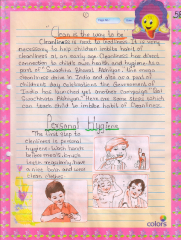 Clean is the way to be
Cleanliness is next to Godliness. It is very
necessary to help children imbibe habit of
cleanliness at an early age. Cleanliness has direct
connection to child's own health and hygiene. As a
part of Swachh Bharat Abhiyan, the mega
cleanliness drive in India and also as a part of
children's day celebrations the Government of
India has launched yet another campaign "Bal
Swachhta Abhiyan". Here are some steps which
can teach child to imbibe habit of Cleanliness.
Personal Hygiene
The first step to
cleanliness is personal
hygiene. Wash hands
before meals, brush
teeth regularly, have
a nice bath and wear
clean clothes.
colors